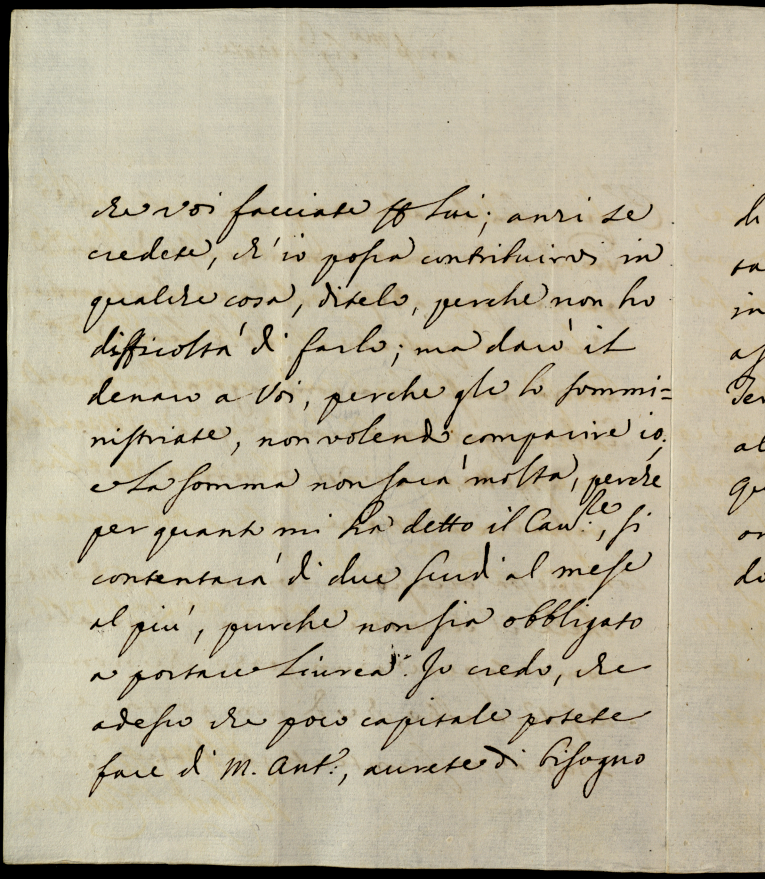 che voi facciate per lui; anzi se
credete, ch'io possa contribuirvi in
qualche cosa, ditelo, perche non ho
difficoltà di farlo; ma darò il
denaro a Voi, perche glie lo sommi=
nistriate, non volendo comparire io.
e la somma non sarà molta, perche
per quanto mi ha detto il Cau:re, si
contentarà di due scudi al mese
al più, purche non sia obbligato
a portare Liurea. Io credo, che
adesso che poco capitale potete
fare di M. Ant:o, aurete di bisogno
di
ta
in
al